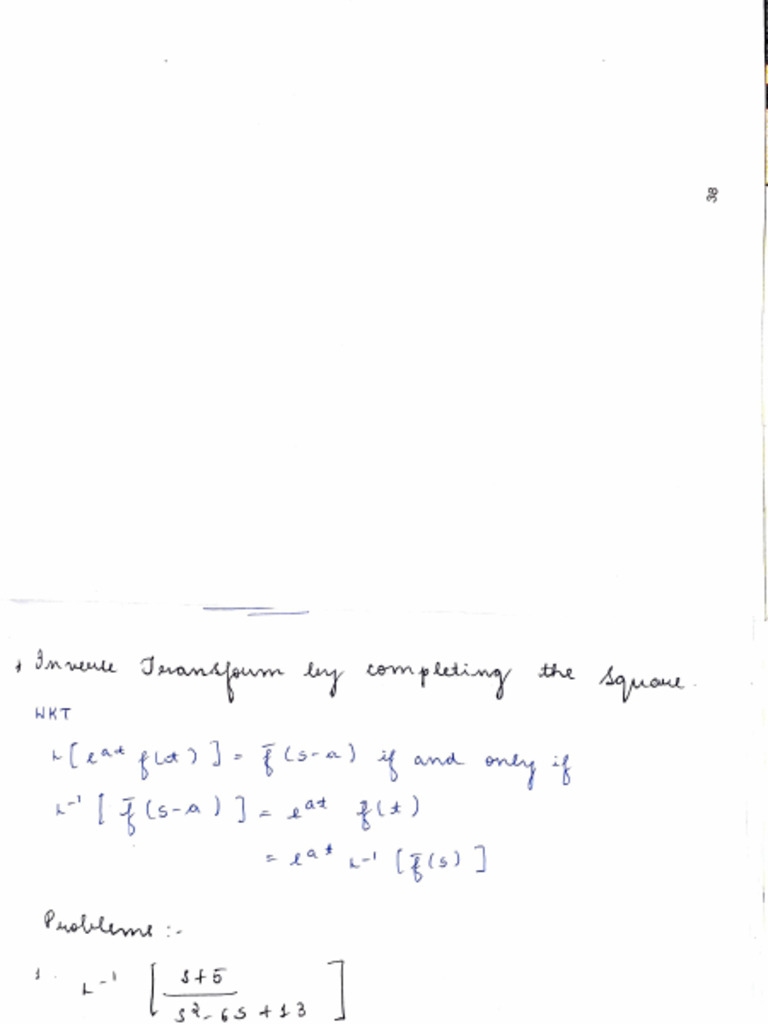 38
Inverse Transform by completing the square.
WKT
L[e^{at} f(t)] = f̄(s-a) if and only if
L^{-1}[f̄(s-a)] = e^{at} f(t)
= e^{at} L^{-1}[f̄(s)]
Problems :-
1. L^{-1} [ (s+5) / (s^2-6s+13) ]